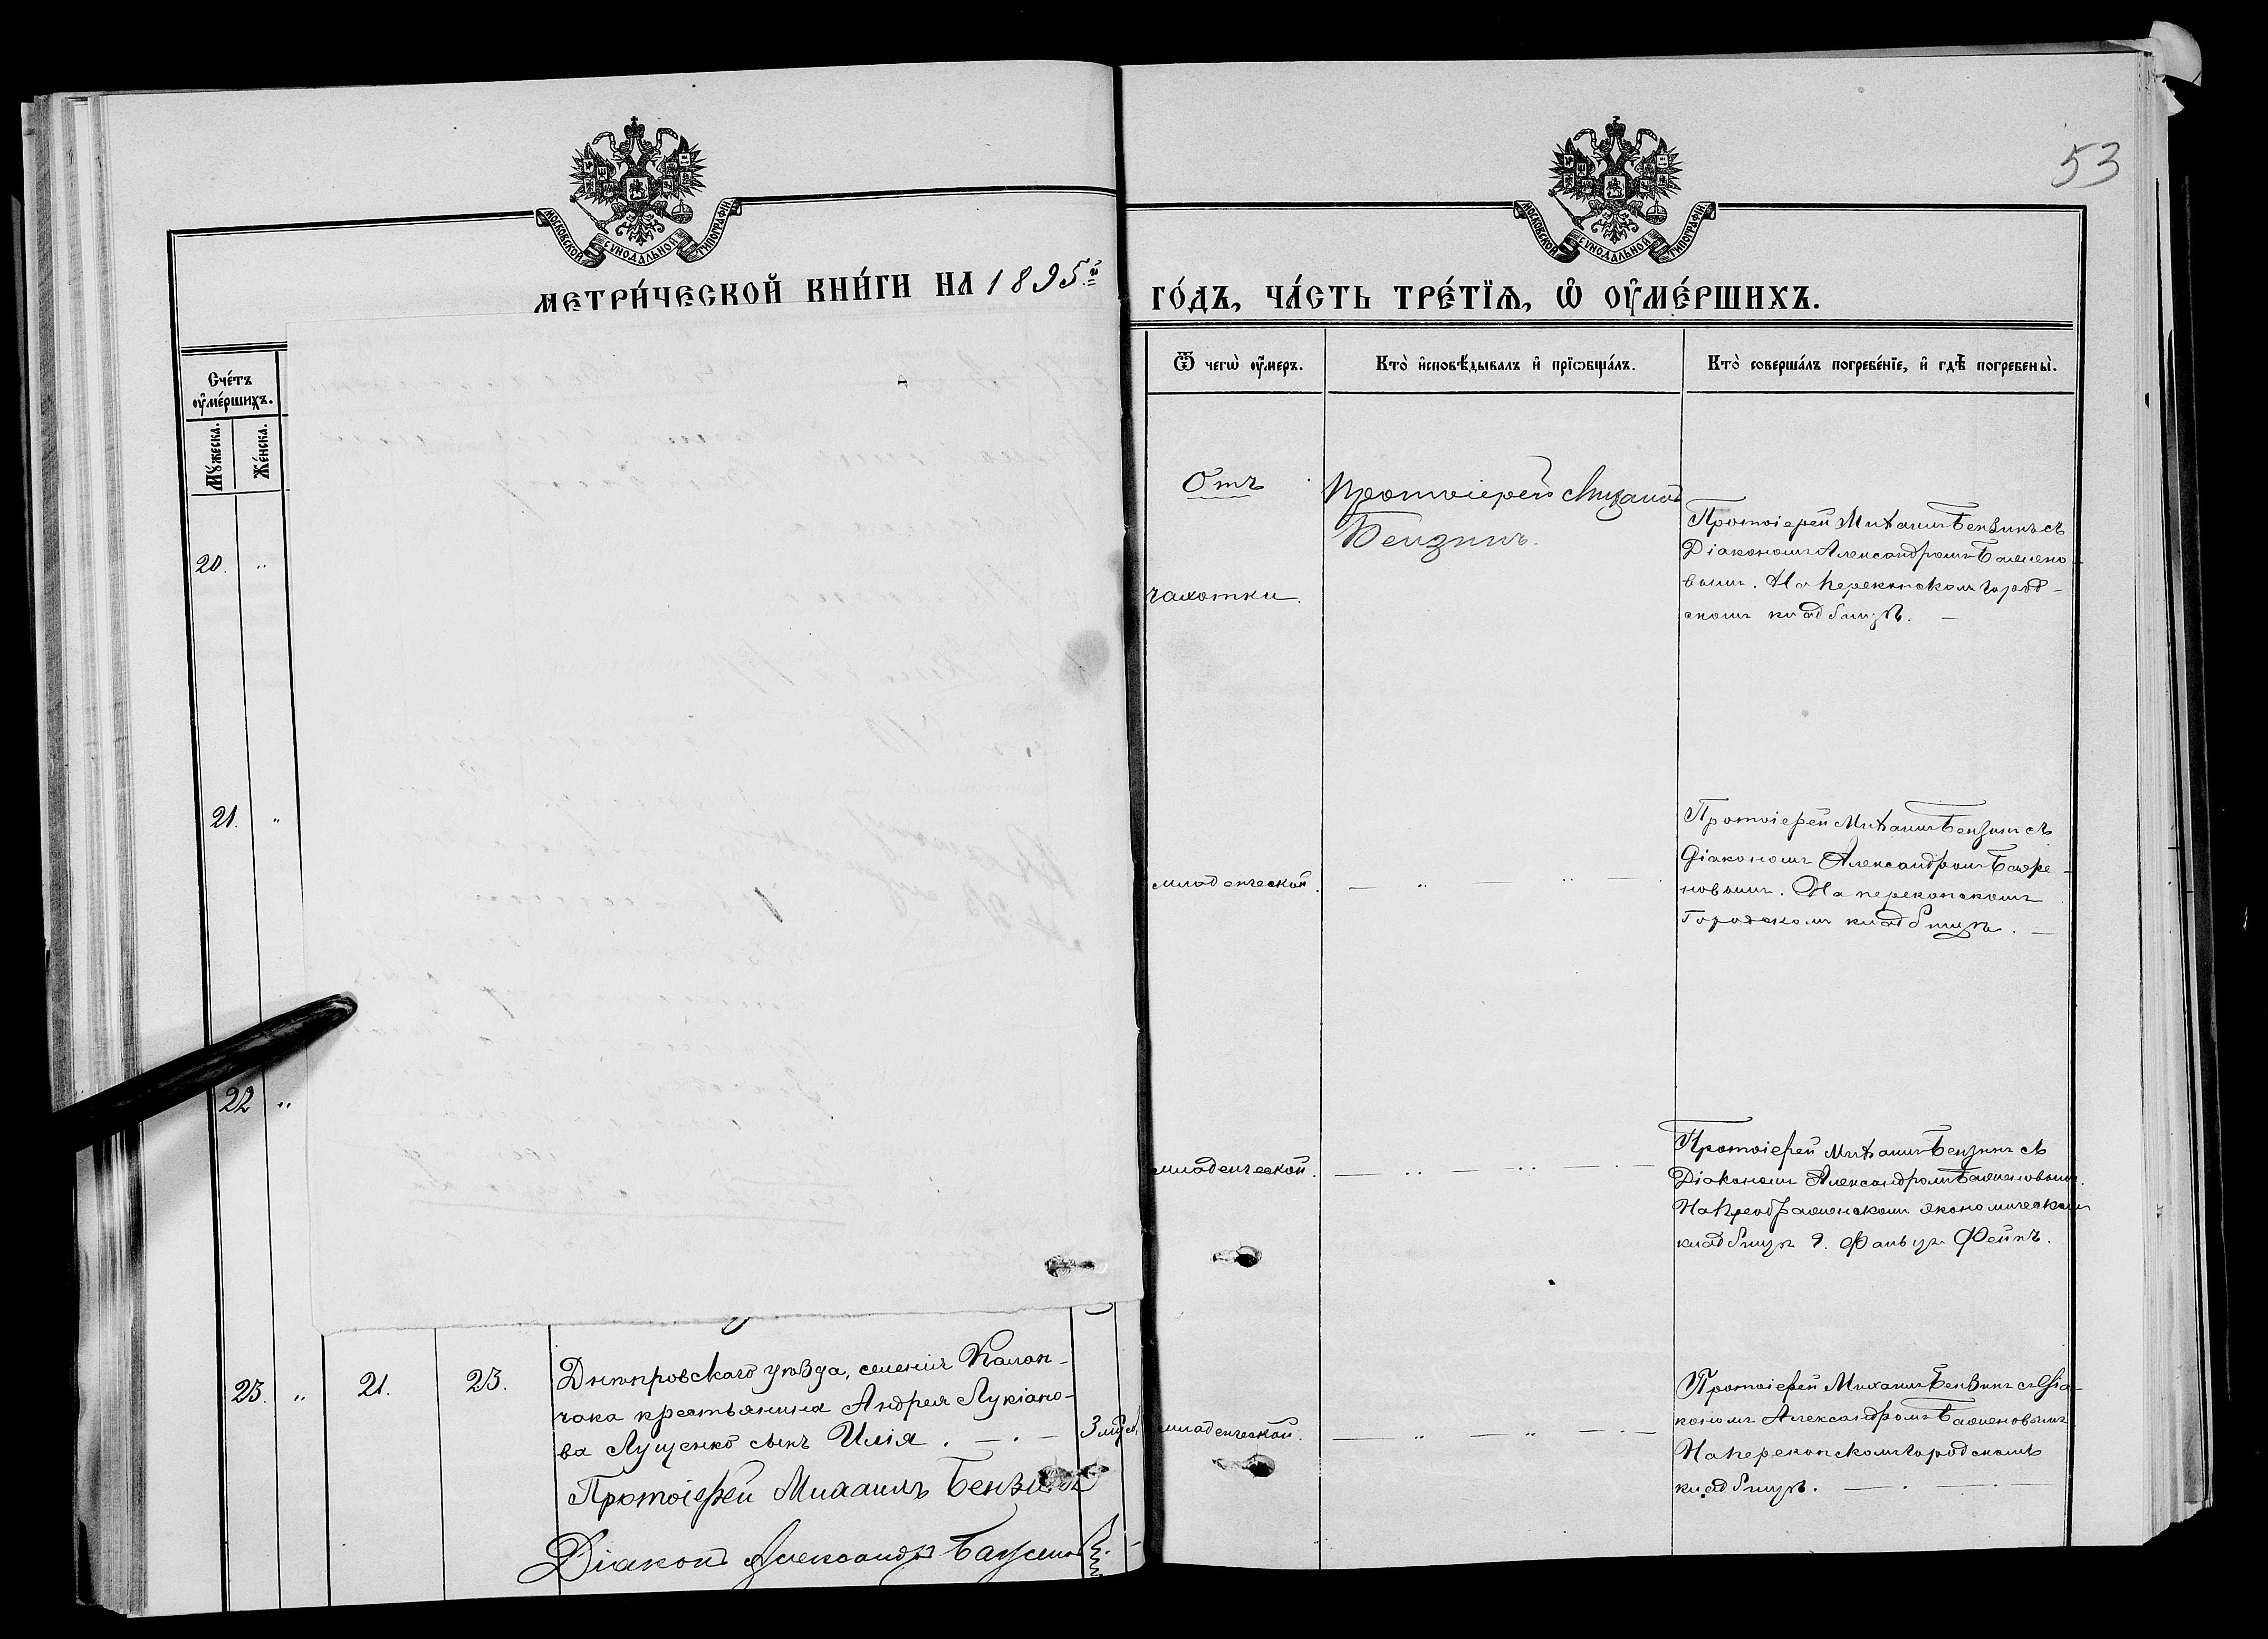 53
МОСКОВСКОЙ СѴНОДАЛЬНОЙ ТИПОГРАФІИ
МОСКОВСКОЙ СѴНОДАЛЬНОЙ ТИПОГРАФІИ
МЕТРИ́ЧЕСКОЙ КНИ́ГИ НА 1895й
ГО́ДЪ, ЧА́СТЬ ТРЕ́ТЇѦ, Ѡ҆ ОУ҆МЕ́РШИХЪ.
Сче́тъ
оу҆ме́ршихъ.
Мꙋ́жеска.
Же́нска.
Ѿ чегѡ̀ оу҆́меръ.
Кто̀ и҆сповѣ́дывалъ и҆ прїѡбща́лъ.
Кто̀ соверша́лъ погребе́нїе, и҆ гдѣ̀ погребены̀.
20. „
Отъ
чахотки.
Протоіерей Михаилъ
Бензинъ.
Протоіерей Михаилъ Бензинъ съ
Діакономъ Александромъ Бажено-
вымъ. На Перекопскомъ Город-
скомъ кладбищѣ. —
21. „
младенческой.
— „ — „ —
Протоіерей Михаилъ Бензинъ съ
Діакономъ Александромъ Баже-
новымъ. На перекопскомъ
Городскомъ кладбищѣ. —
22 „
младенческой.
— „ — „ — . —
Протоіерей Михаилъ Бензинъ съ
Діакономъ Александромъ Баженовымъ.
На Преображенскомъ экономическомъ
кладбищѣ Г. Фальцъ Фейнъ.
23. „ 21. 23.
Днѣпровскаго уѣзда, селенія Калан-
чака крестьянина Андрея Лукіано-
ва Лущенко сынъ Илія. — . —
3 мѣс.
младенческой.
— „ — „ — . —
Протоіерей Михаилъ Бензинъ съ Діа-
кономъ Александромъ Баженовымъ
На Перекопскомъ Городскомъ
кладбищѣ. — . — . —
Протоіерей Михаилъ Бензинъ
Діаконъ Александръ Баженовъ